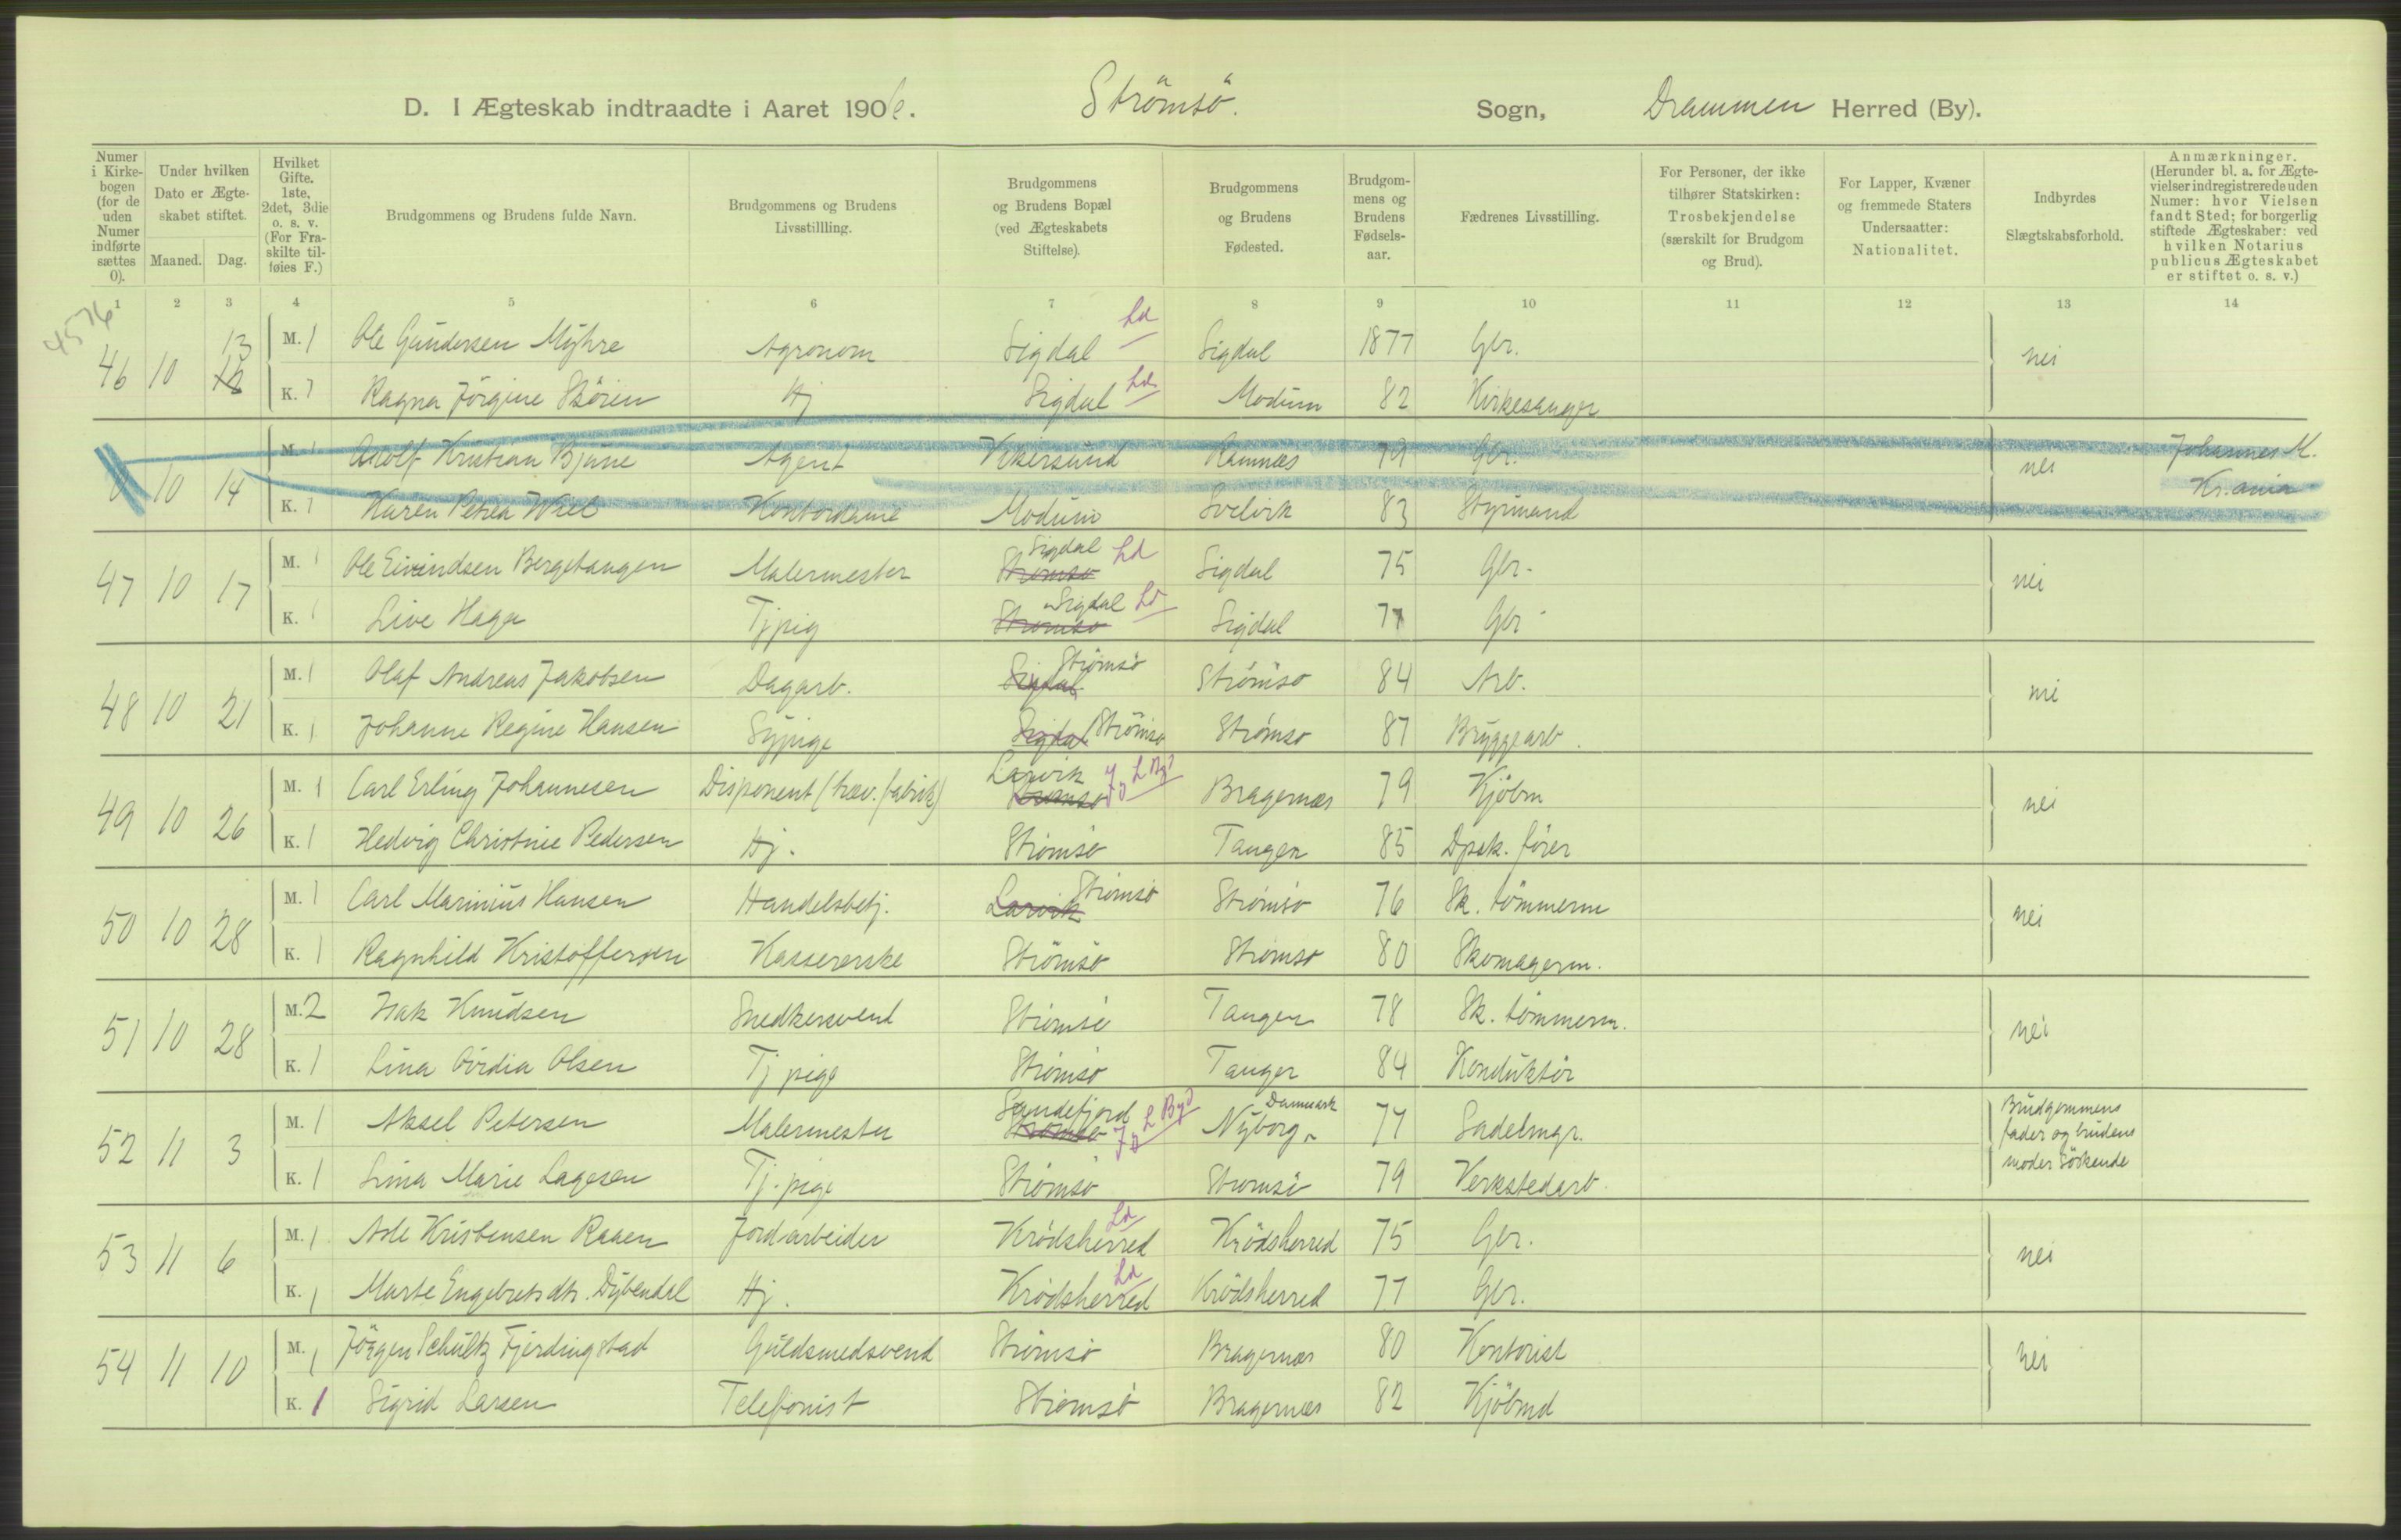 D. I Ægteskab indtraadte i Aaret 1906. Strömsö. Sogn, Drammen Herred (By).
Numer i Kirkebogen (for de uden Numer indførte sættes 0).
Under hvilken Dato er Ægteskabet stiftet.
Maaned. Dag.
Hvilket Gifte. 1ste, 2det, 3die o. s. v. (For Fraskilte tilføies F.)
Brudgommens og Brudens fulde Navn.
Brudgommens og Brudens Livsstillling.
Brudgommens og Brudens Bopæl (ved Ægteskabets Stiftelse).
Brudgommens og Brudens Fødested.
Brudgommens og Brudens Fødselsaar.
Fædrenes Livsstilling.
For Personer, der ikke tilhører Statskirken: Trosbekjendelse (særskilt for Brudgom og Brud).
For Lapper, Kvæner og fremmede Staters Undersaatter: Nationalitet.
Indbyrdes Slægtskabsforhold.
Anmærkninger. (Herunder bl. a. for Ægtevielser indregistrerede uden Numer: hvor Vielsen fandt Sted; for borgerlig stiftede Ægteskaber: ved hvilken Notarius publicus Ægteskabet er stiftet o. s. v.)
1 2 3 4 5 6 7 8 9 10 11 12 13 14
4576
46 10 13 12 M. 1 Ole Gundersen Myhre Agronom Sigdal Ld Sigdal 1877 Gbr. nei
K. 1 Ragna Jörgine Skören Hj Sigdal Ld Modum 82 Kirkesanger
0 10 14 M. 1 Kristian Bjune Agent Vikersund Ramnæs 79 Gbr. nei Johannes M.
Kr.ania
K. 1 Karen Petrea Kontordame Modum Svelvik 83 Styrmand
47 10 17 M. 1 Ole Eivindsen Bergetangen Malermester Strömsö Sigdal Ld Sigdal 75 Gbr. nei
K. 1 Live Haga Tjpig Strömsö Sigdal Ld Sigdal 77 Gbr
48 10 21 M. 1 Olaf Andreas Jakobsen Dagarb. Sigdal Strömsö Strömsö 84 Arb. nei
K. 1 Johanne Regine Hansen Sypige Sigdal Strömsö Strömsö 87 Bryggearb.
49 10 26 M. 1 Carl Erling Johannesen Disponent (træv. fabrik) Strömsö Larvik L Byd Bragernæs 79 Kjöbm nei
K. 1 Hedvig Christine Pedersen Hj. Strömsö Tangen 85 Dpsk. förer
50 10 28 M. 1 Carl Marinius Hansen Handelsbetj. Larvik Strömsö Strömsö 76 Sk. tömmerm nei
K. 1 Ragnhild Kristoffersen Kassererske Strömsö Strömsö 80 Skomagerm.
51 10 28 M. 2 Isak Knudsen Snedkersvend Strömsö Tangen 78 Sk. tömmerm. nei
K. 1 Lina Ovidia Olsen Tj pige Strömsö Tangen 84 Konduktör
52 11 3 M. 1 Aksel Petersen Malermester Strömsö Sandefjord L Byd Nyborg Danmark 77 Sadelmgr. Brudgommens fader og brudens moder söskende
K. 1 Lina Marie Lagesen Tj. pige Strömsö Strömsö 79 Verkstedarb.
53 11 6 M. 1 Asle Kristensen Raaen Jordarbeider Krödsherred Ld Krödsherred 75 Gbr. nei
K. 1 Marte Engebretsdtr. Dybendal Hj. Krödsherred Ld Krödsherred 77 Gbr.
54 11 10 M. 1 Jörgen Schultz Fjerdingstad Guldsmedsvend Strömsö Bragernæs 80 Kontorist nei
K. 1 Sigrid Larsen Telefonist Strömsö Bragernæs 82 Kjöbmd